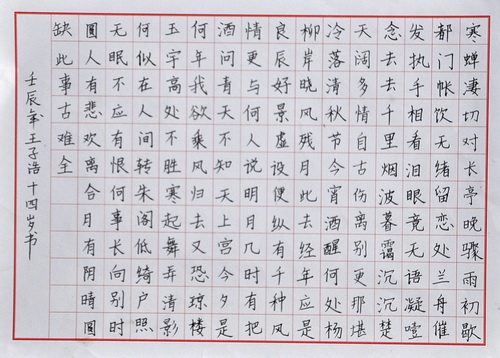 寒蝉凄切对长亭晚骤雨初歇
都门帐饮无绪留恋处兰舟催
发执手相看泪眼竟无语凝噎
念去去千里烟波暮霭沉沉楚
天阔多情自古伤离别更那堪
冷落清秋节今宵酒醒何处杨
柳岸晓风残月此去经年应是
良辰好景虚设便纵有千种风
情更与何人说明月几时有把
酒问青天不知天上宫今夕是
何年我欲乘风归去又恐琼楼
玉宇高处不胜寒起舞弄清影
何似在人间转朱阁低绮户照
无眠不应有恨何事长向别时
圆人有悲欢离合月有阴晴圆
缺此事古难全
壬辰年王子浩十四岁书